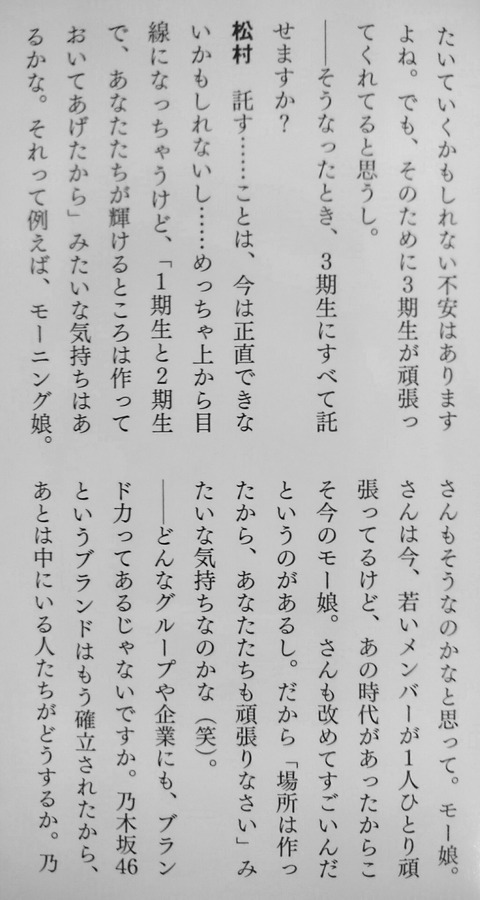 たいていくかもしれない不安はあります
よね。でも、そのために3期生が頑張っ
てくれてると思うし。
──そうなったとき、3期生にすべて託
せますか?
松村　託す……ことは、今は正直できな
いかもしれないし……めっちゃ上から目
線になっちゃうけど、「1期生と2期生
で、あなたたちが輝けるところは作って
おいてあげたから」みたいな気持ちはあ
るかな。それって例えば、モーニング娘。
さんもそうなのかなと思って。モー娘。
さんは今、若いメンバーが1人ひとり頑
張ってるけど、あの時代があったからこ
そ今のモー娘。さんも改めてすごいんだ
というのがあるし。だから「場所は作っ
たから、あなたたちも頑張りなさい」み
たいな気持ちなのかな(笑)。
──どんなグループや企業にも、ブラン
ド力ってあるじゃないですか。乃木坂46
というブランドはもう確立されたから、
あとは中にいる人たちがどうするか。乃